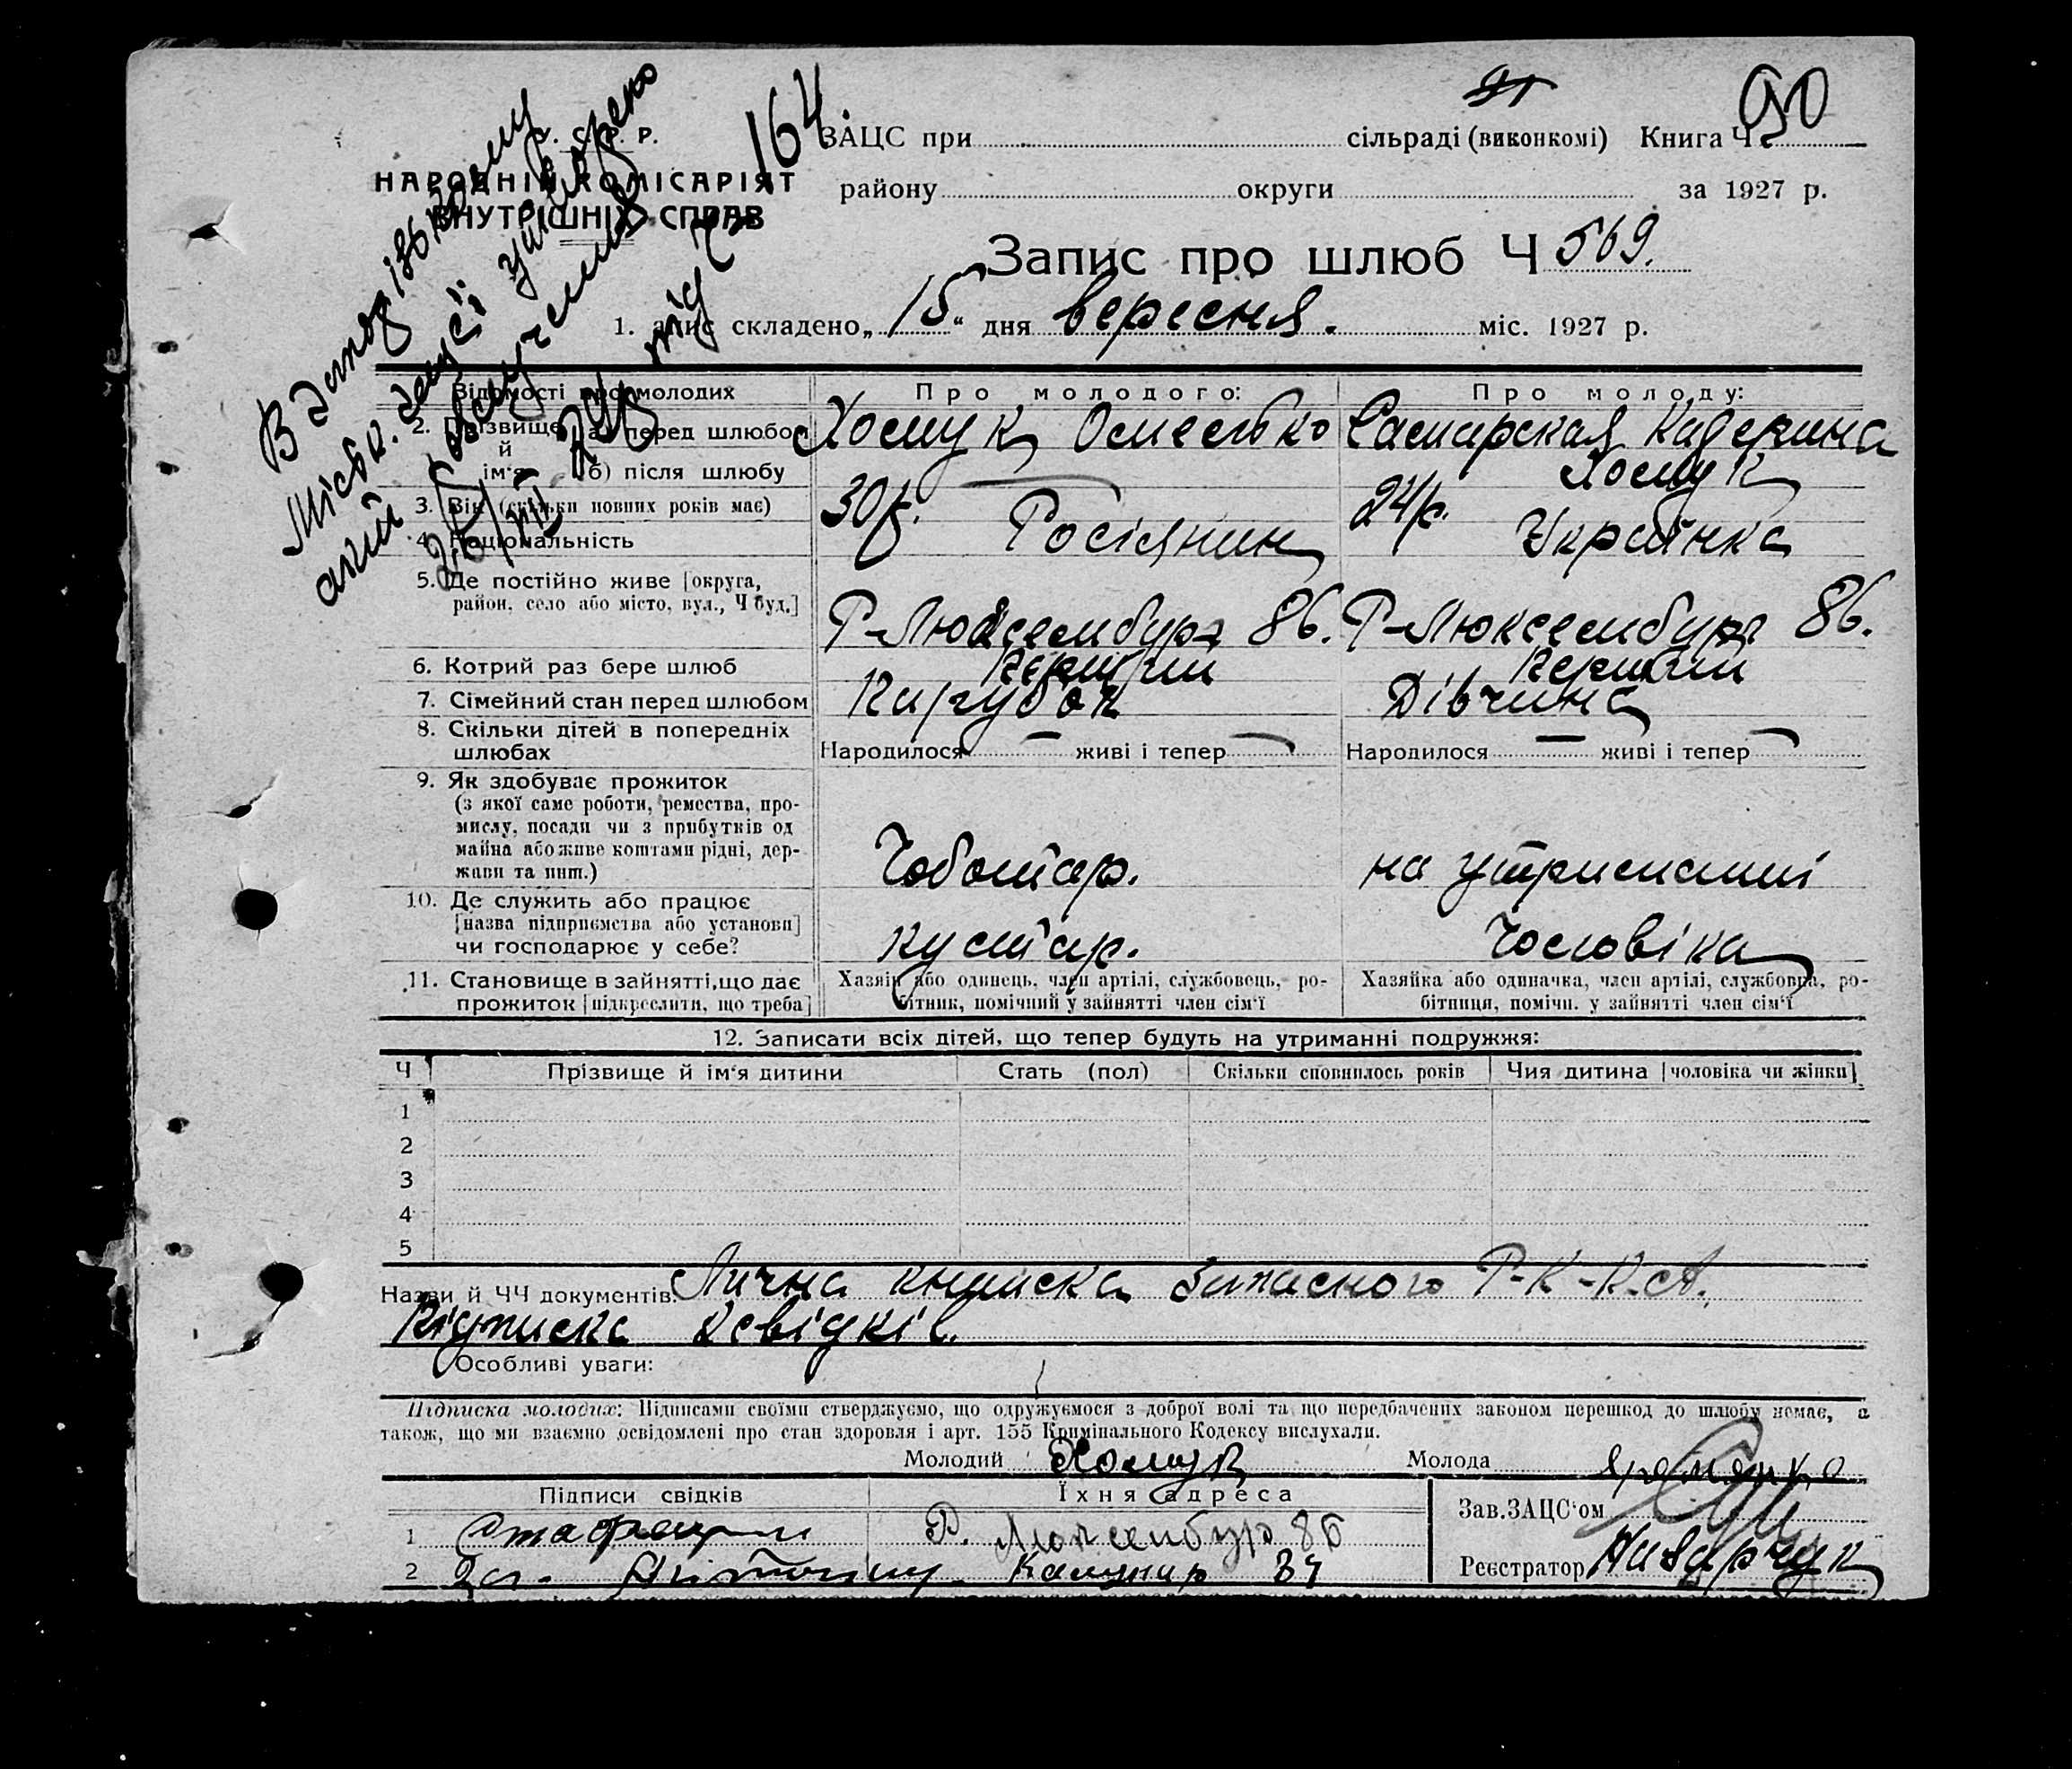 90
У. С. Р. Р.
НАРОДНІЙ КОМІСАРІЯТ
ВНУТРІШНІХ СПРАВ
164.
ЗАЦС при сільраді (виконкомі) Книга Ч
району округи за 1927 р.
Запис про шлюб Ч 569.
1. апис складено „15“ дня вересня. міс. 1927 р.
Відомості про молодих Про молодого: Про молоду:
2. Прізвище й ім'я а) перед шлюбом Хомук Самарская Катерина
б) після шлюбу Хомук
3. Вік (скільки повних років має) 30 р. 24 р.
4. Національність Росіянин Українка
5. Де постійно живе [округа,
район, село або місто, вул., Ч буд.] Р-Люксембург 86. Р-Люксембург 86.
6. Котрий раз бере шлюб Перший Перший
7. Сімейний стан перед шлюбом Парубок Дівчина
8. Скільки дітей в попередніх
шлюбах Народилося — живі і тепер — Народилося — живі і тепер —
9. Як здобуває прожиток
(з якої саме роботи, ремества, про-
мислу, посади чи з прибутків од
майна або живе коштами рідні, дер-
жави та инш.) Чоботар. на утриманні
10. Де служить або працює
[назва підприємства або установи]
чи господарює у себе? кустар. Чоловіка
11. Становище в зайнятті, що дає
прожиток [підкреслити, що треба]
Хазяїн або одинець, член артілі, службовець, ро-
бітник, помічний у зайнятті член сім'ї
Хазяйка або одиначка, член артілі, службовця, ро-
бітниця, помічн. у зайнятті член сім'ї
12. Записати всіх дітей, що тепер будуть на утриманні подружжя:
Ч Прізвище й ім'я дитини Стать (пол) Скільки сповнилось років Чия дитина [чоловіка чи жінки]
1
2
3
4
5
Назви й ЧЧ документів: Лична книжка Запасного Р-К-К.А.
Підписка свідків.
Особливі уваги:
Підписка молодих: Підписами своїми стверджуємо, що одружуємося з доброї волі та що передбачених законом перешкод до шлюбу немає, а
також, що ми взаємно освідомлені про стан здоровля і арт. 155 Кримінального Кодексу вислухали.
Молодий Хомук Молода
Підписи свідків Їхня адреса
Зав. ЗАЦС'ом
1 Р. Люксембург 86
2 84
Реєстратор